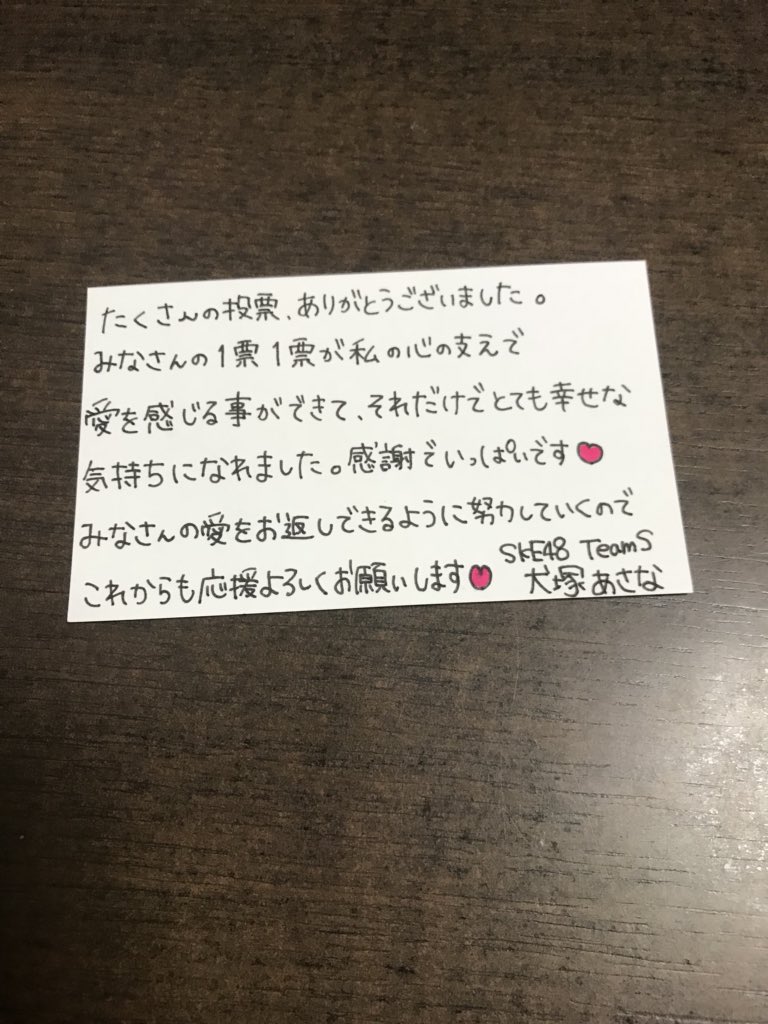 たくさんの投票、ありがとうございました。
みなさんの1票1票が私の心の支えで
愛を感じる事ができて、それだけでとても幸せな
気持ちになれました。感謝でいっぱいです♥
みなさんの愛をお返しできるように努力していくので
これからも応援よろしくお願いします♥
SKE48 TeamS
犬塚あさな